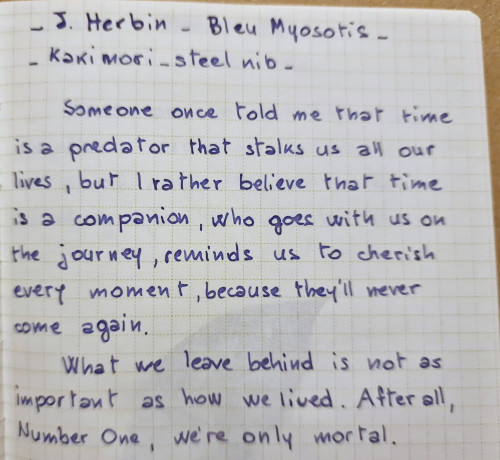 - J. Herbin - Bleu Myosotis -
- Kakimori - steel nib -
Someone once told me that time
is a predator that stalks us all our
lives, but I rather believe that time
is a companion, who goes with us on
the journey, reminds us to cherish
every moment, because they'll never
come again.
What we leave behind is not as
important as how we lived. After all,
Number One, we're only mortal.